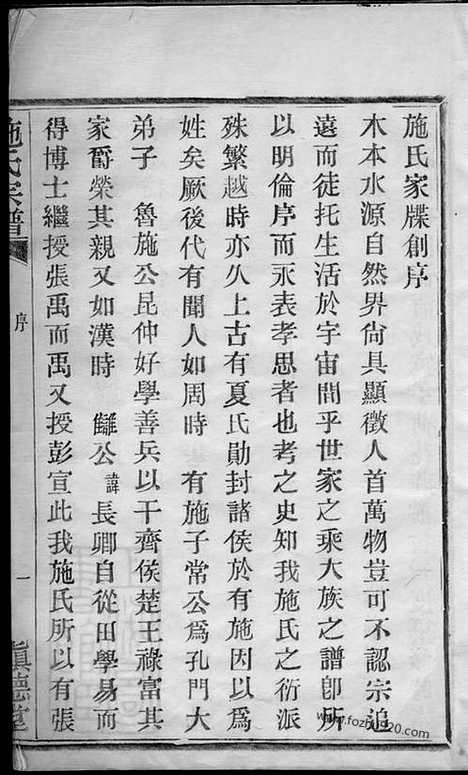 施氏家牒創序
木本水源自然界尙具顯徵人首萬物豈可不認宗追
遠而徒托生活於宇宙間乎世家之乘大族之譜卽所
以明倫序而永表孝思者也考之史知我施氏之衍派
殊繁越時亦久上古有夏氏勛封諸侯於有施因以爲
姓矣厥後代有聞人如周時 有施子常公爲孔門大
弟子 魯施公昆仲好學善兵以干齊侯楚王祿富其
家爵榮其親又如漢時 讎公諱長卿自從田學易而
得博士繼授張禹而禹又授彭宣此我施氏所以有張
施氏宗譜
序
一
愼德堂
www.fozhu920.com